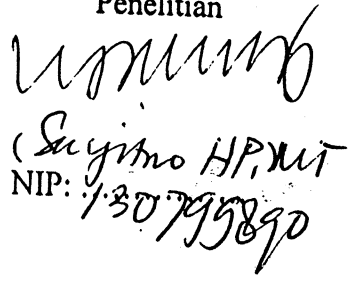 Penelitian
(Sugitno HP, MT
NIP: 130795890